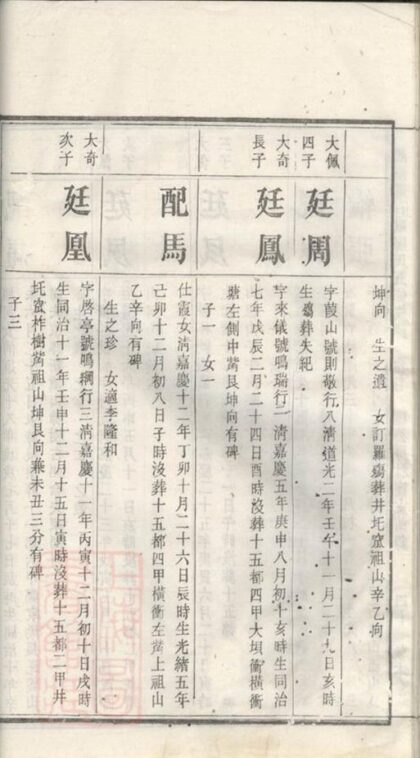 坤向 生之遺 女訂羅殤葬井圫窰祖山辛乙向
大佩四子
廷周
字霞山號則敬行八清道光二年壬午十一月二十九日亥時
生殤葬失紀
大奇長子
廷鳳
字來儀號鳴瑞行二清嘉慶五年庚申八月初十亥時生同治
七年戊辰二月二十四日酉時沒葬十五都四甲大垻衝橫衝
塘左側中嵴艮坤向有碑
子一 女一
配馬
仕霞女清嘉慶十二年丁卯十月二十六日辰時生光緒五年
己卯十二月初八日子時沒葬十五都四甲橫衝左嵴上祖山
乙辛向有碑
生之珍 女適李隆和
大奇次子
廷凰
字啓亭號鳴綱行三清嘉慶十一年丙寅十二月初十日戌時
生同治十一年壬申十二月十五日寅時沒葬十五都二甲井
圫窰柞樹嵴祖山坤艮向兼未丑三分有碑
子三